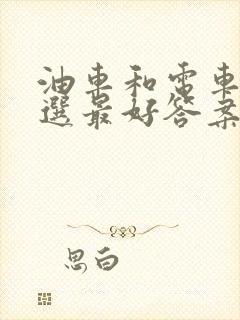 油車和電車
選最好答案
思白